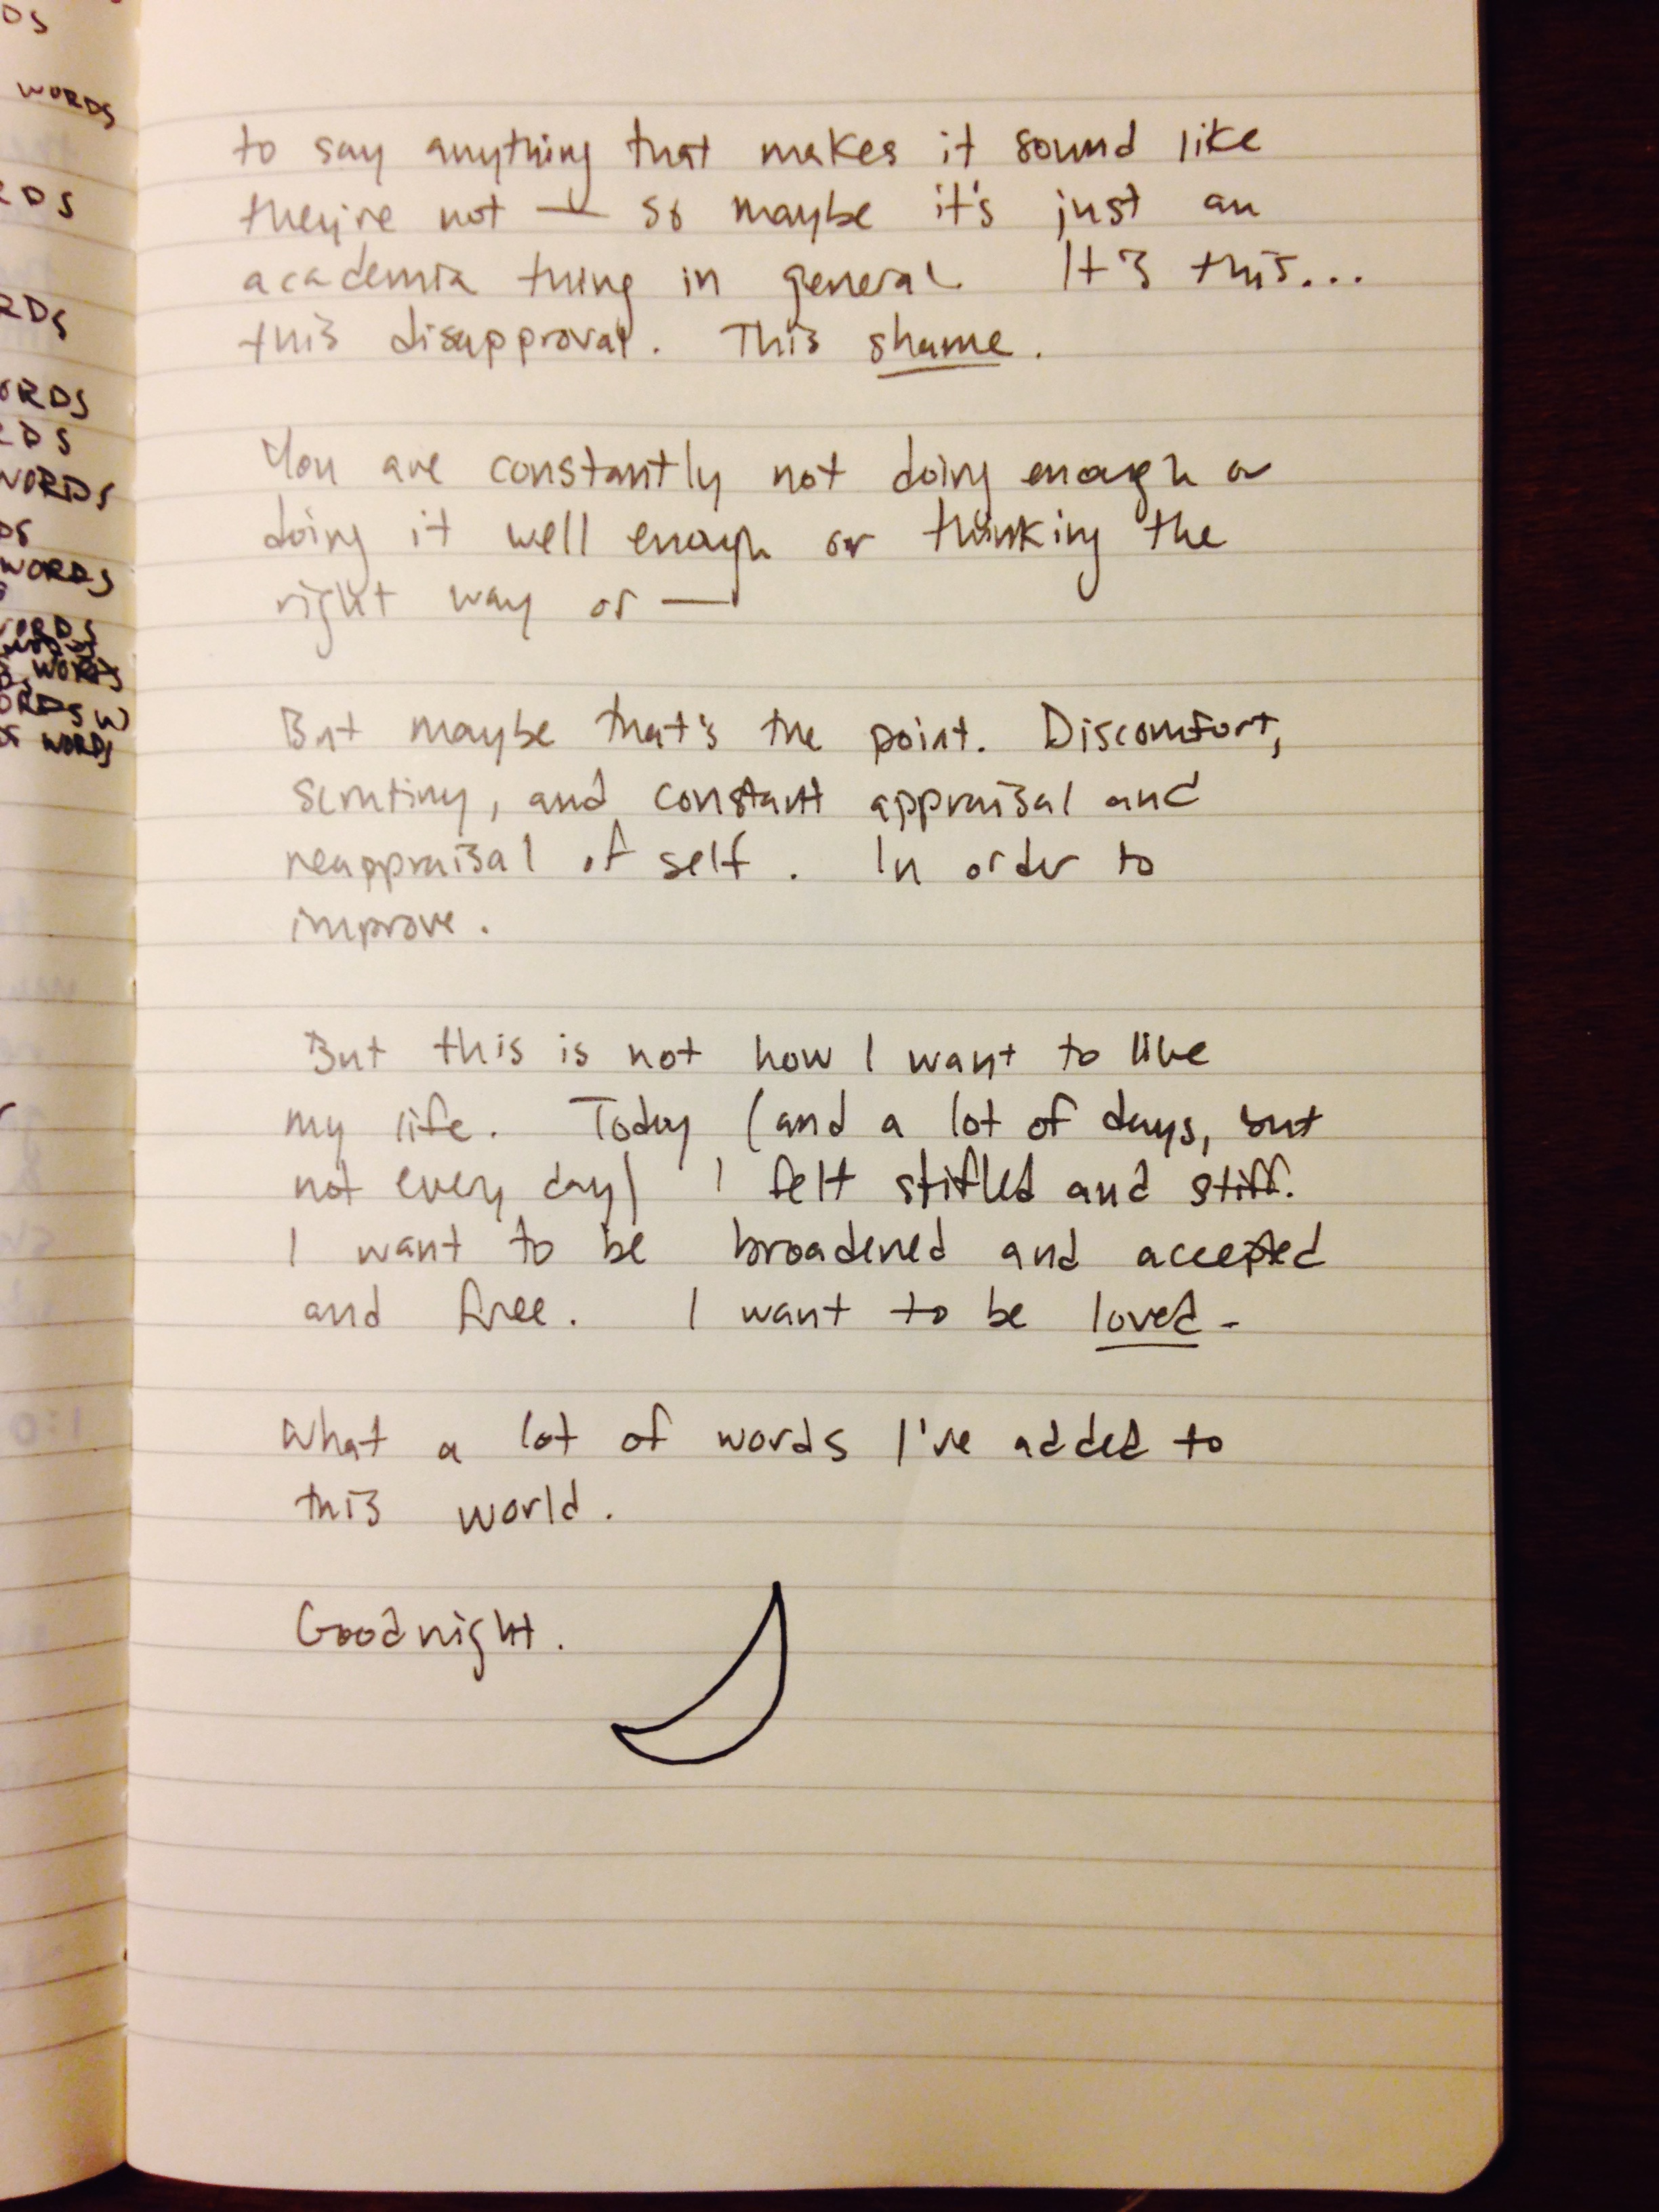 DS
WORDS
RDS
RDS
ORDS
RDS
WORDS
DS
WORDS
WORDS
WORDS
ORDS W
WORDS
to say anything that makes it sound like
they're not — so maybe it's just an
academia thing in general. It's this...
this disapproval. This shame.
You are constantly not doing enough or
doing it well enough or thinking the
right way or —
But maybe that's the point. Discomfort,
scrutiny, and constant appraisal and
reappraisal of self. In order to
improve.
But this is not how I want to live
my life. Today (and a lot of days, but
not every day) I felt stifled and stiff.
I want to be broadened and accepted
and free. I want to be loved.
What a lot of words I've added to
this world.
Goodnight.